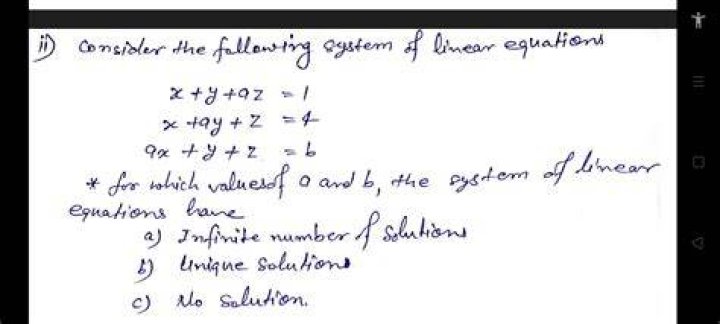 ii) Consider the following system of linear equations
x + y + az = 1
x + ay + z = 4
ax + y + z = b
* for which values of a and b, the system of linear
equations have
a) Infinite number of solutions
b) Unique solutions
c) No solution.